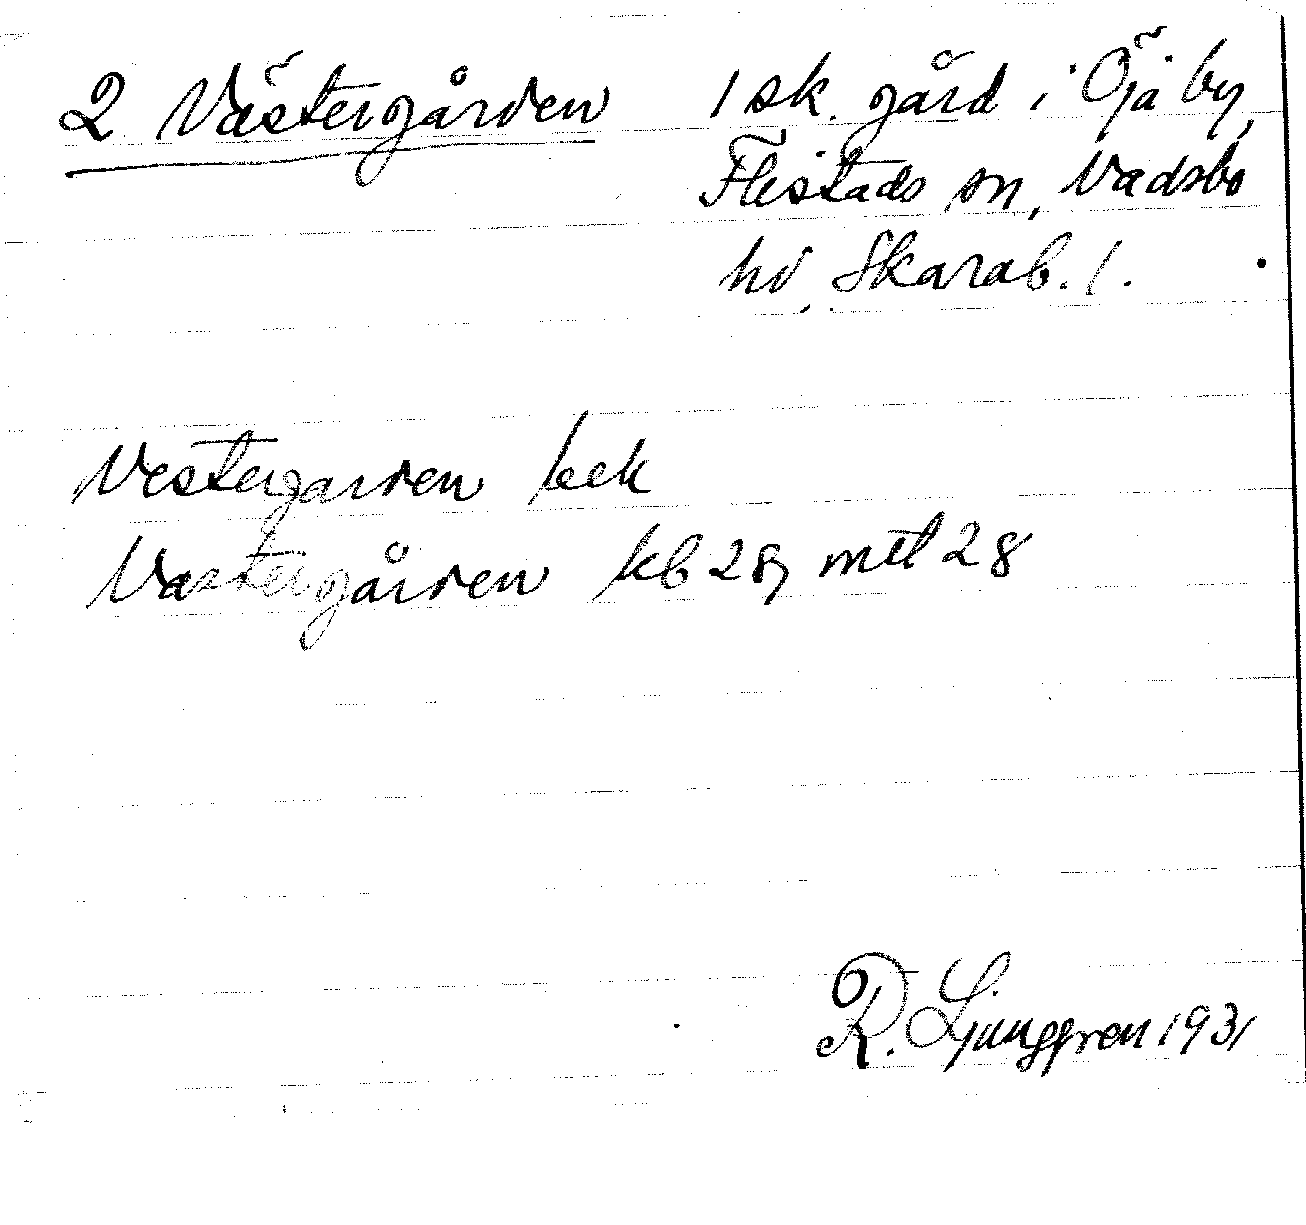 2 Västergården 1 sk. gård i Öja by,
Flistads sn, Vadsbo
hd, Skarab. l.
Vestergarden bek
Vastergården kb 28, mtl 28
R. Ljunggren 1931